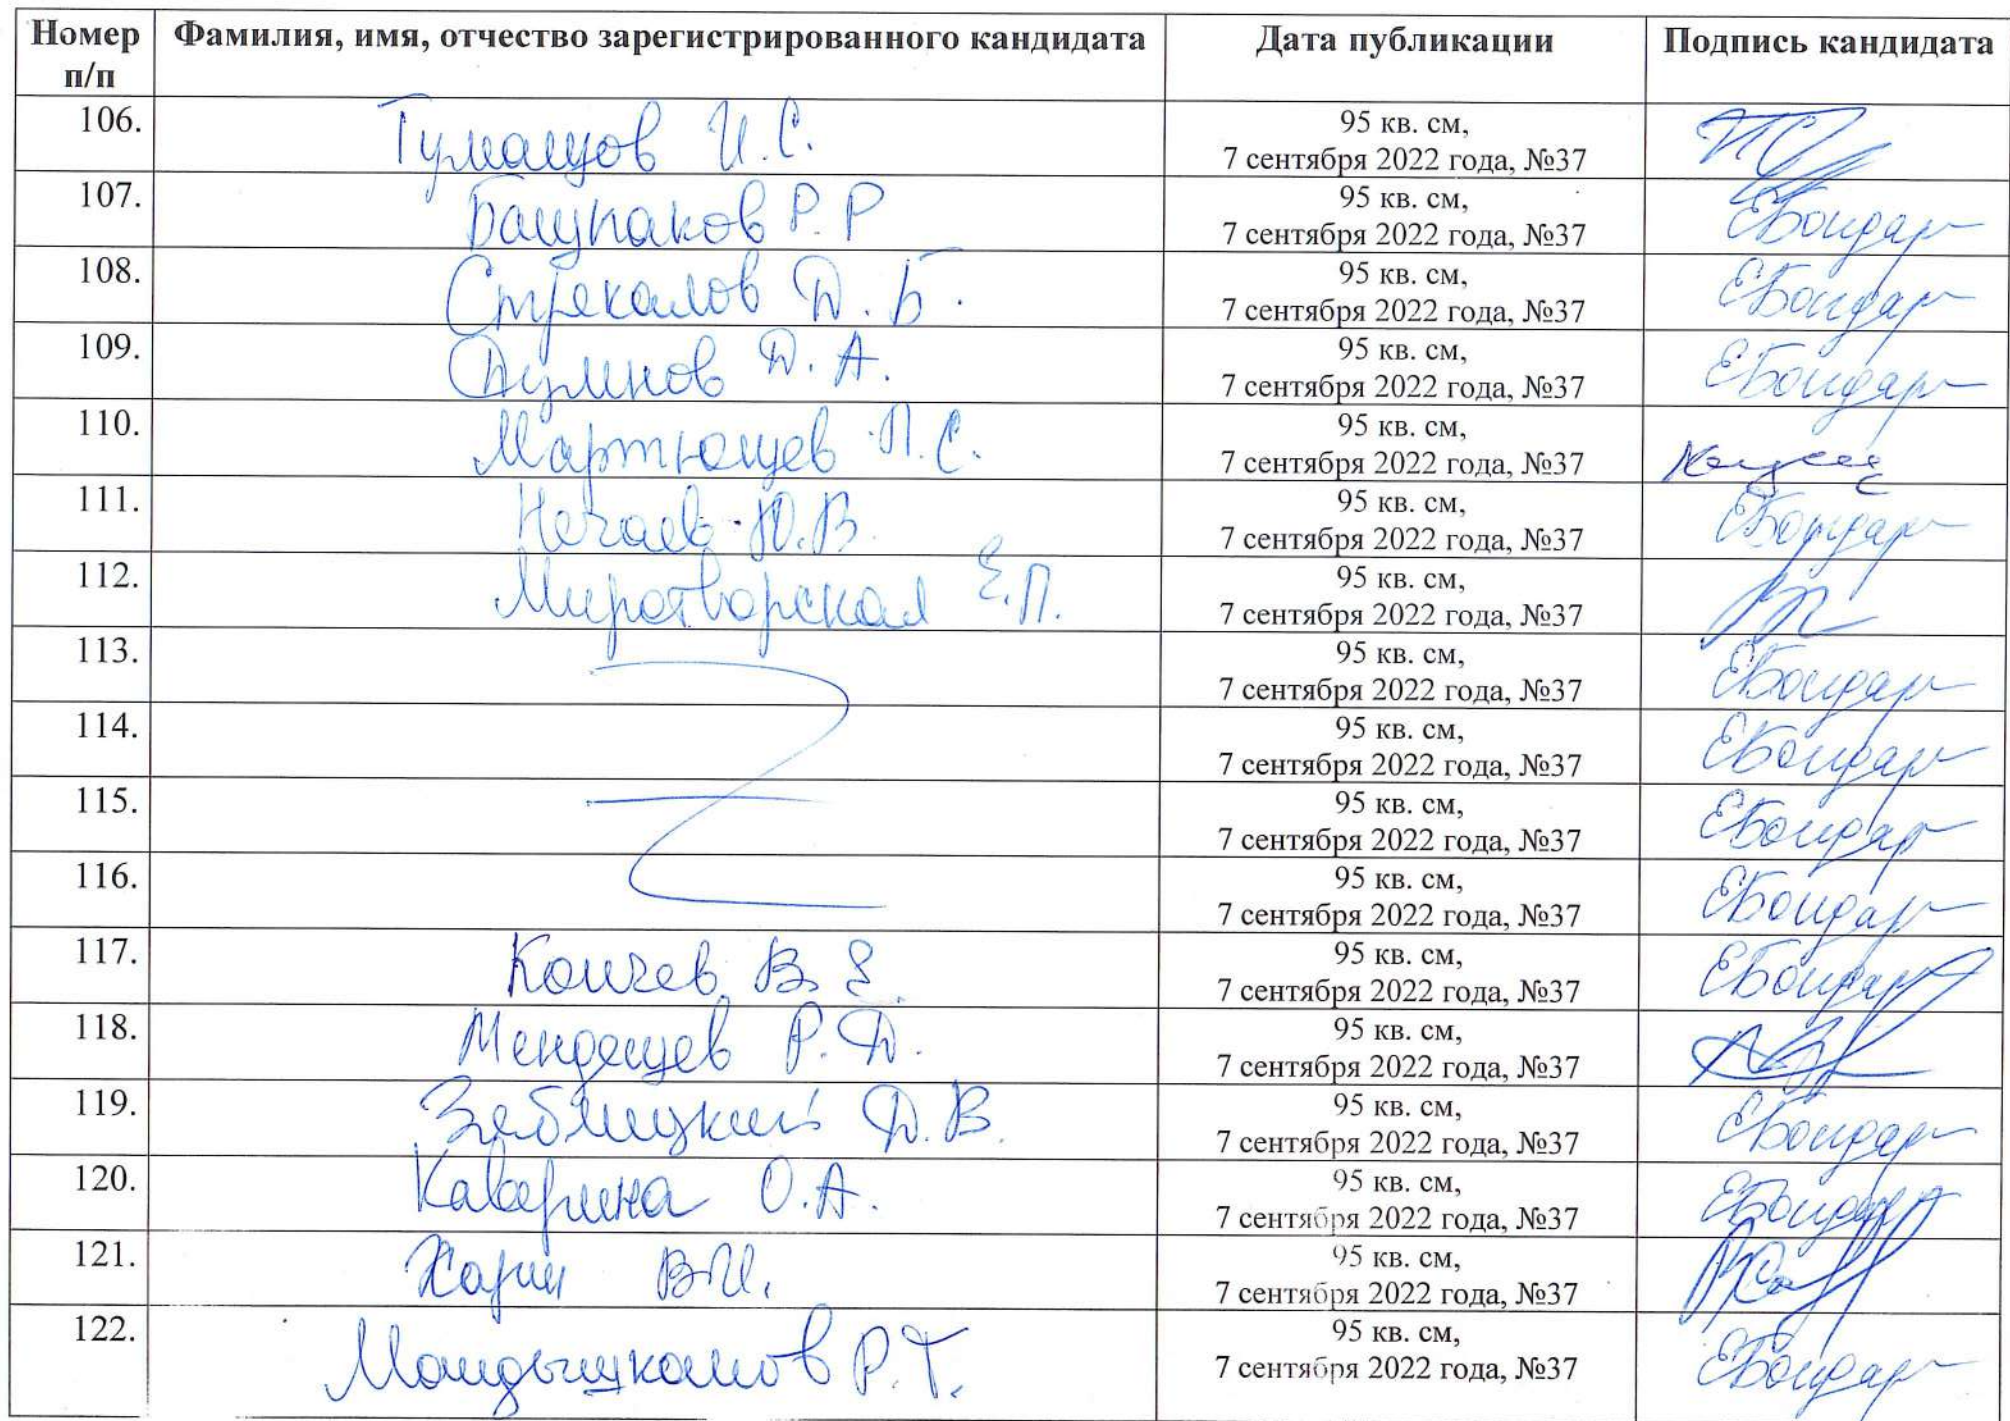 Номер Фамилия, имя, отчество зарегистрированного кандидата Дата публикации Подпись кандидата
п/п
106. И.С. 95 кв. см,
7 сентября 2022 года, №37
107. Р.Р 95 кв. см,
7 сентября 2022 года, №37 ЕБондар
108. Стрекалов Д.Б. 95 кв. см,
7 сентября 2022 года, №37 ЕБондар
109. Думнов Д.А. 95 кв. см,
7 сентября 2022 года, №37 ЕБондар
110. Мартюшев П.С. 95 кв. см,
7 сентября 2022 года, №37
111. Нечаев Ю.В. 95 кв. см,
7 сентября 2022 года, №37 ЕБондар
112. Миротворская Е.П. 95 кв. см,
7 сентября 2022 года, №37
113. 95 кв. см,
7 сентября 2022 года, №37 ЕБондар
114. 95 кв. см,
7 сентября 2022 года, №37 ЕБондар
115. 95 кв. см,
7 сентября 2022 года, №37 ЕБондар
116. 95 кв. см,
7 сентября 2022 года, №37 ЕБондар
117. В.Е. 95 кв. см,
7 сентября 2022 года, №37 ЕБондар
118. Р.Д. 95 кв. см,
7 сентября 2022 года, №37
119. Д.В. 95 кв. см,
7 сентября 2022 года, №37 ЕБондар
120. Каверина О.А. 95 кв. см,
7 сентября 2022 года, №37 ЕБондар
121. Харин В.И. 95 кв. см,
7 сентября 2022 года, №37
122. Р.Т. 95 кв. см,
7 сентября 2022 года, №37 ЕБондар